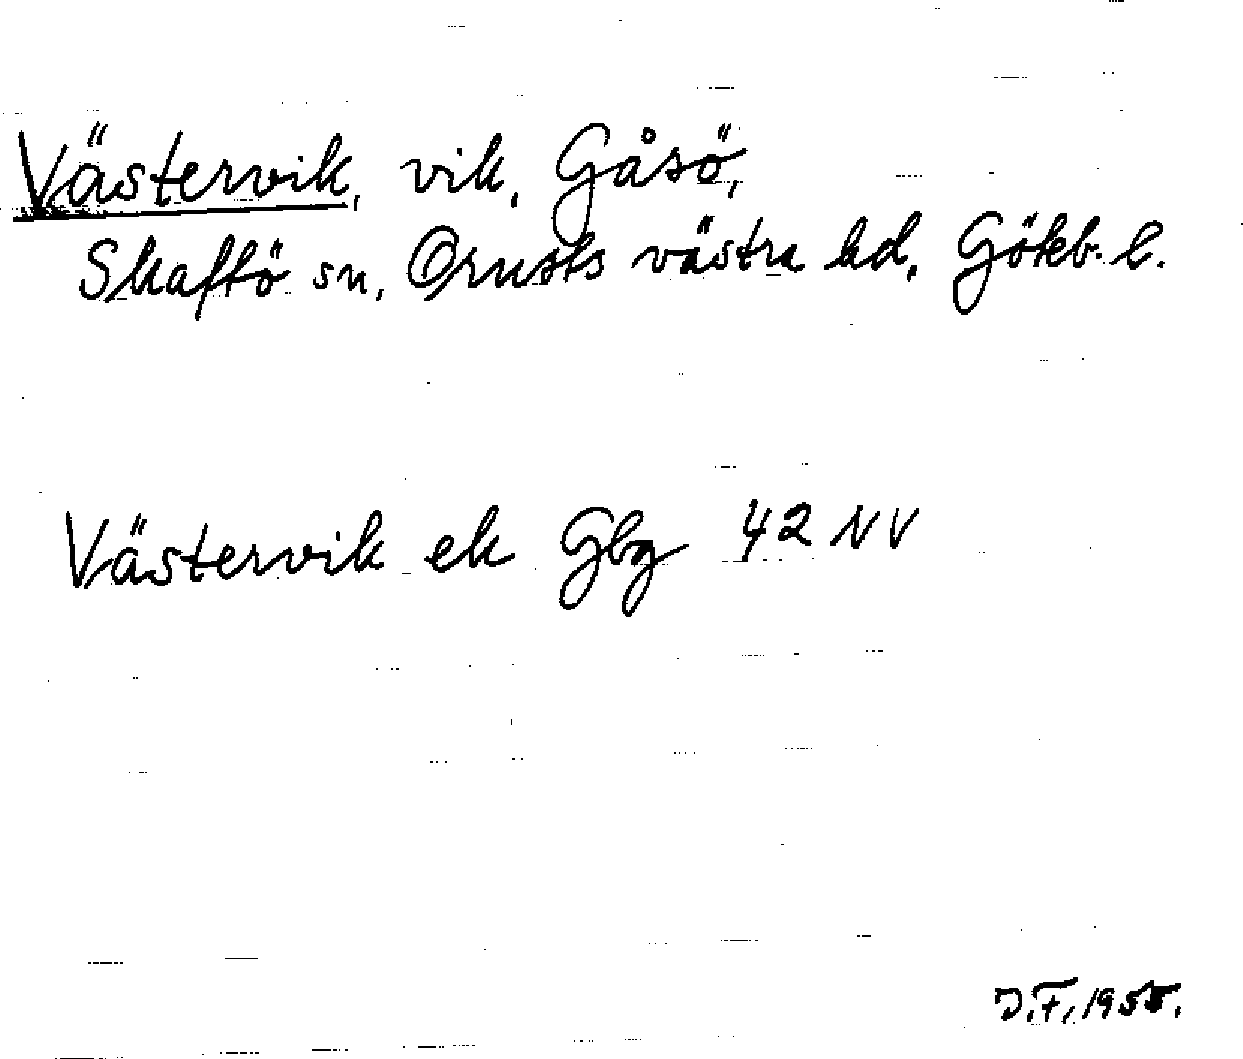 Västervik, vik, Gåsö,
Skaftö sn, Orusts västra hd, Göteb. l.
Västervik ek Gbg 42 NV
D.F. 1955.